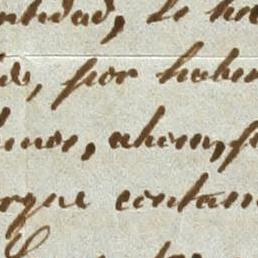 ntidad, lo ha
do, por haber
imos, ahora, p
rque contam